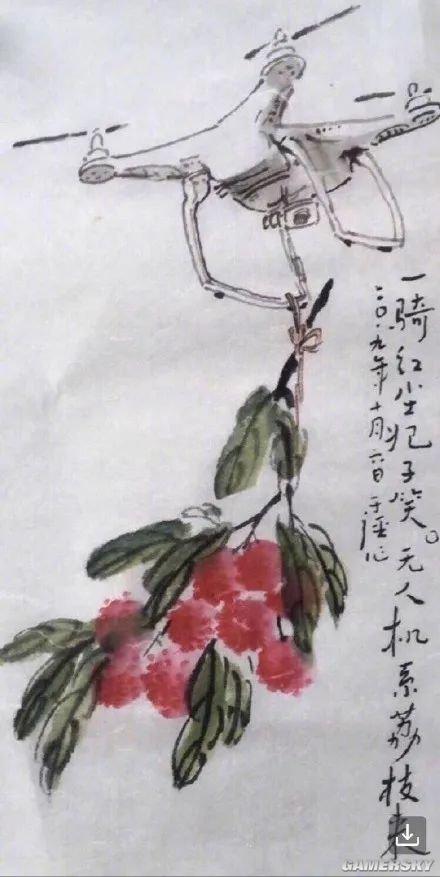 一骑红尘妃子笑。无人机系荔枝来
二〇一九年十月 日 于
GAMERSKY